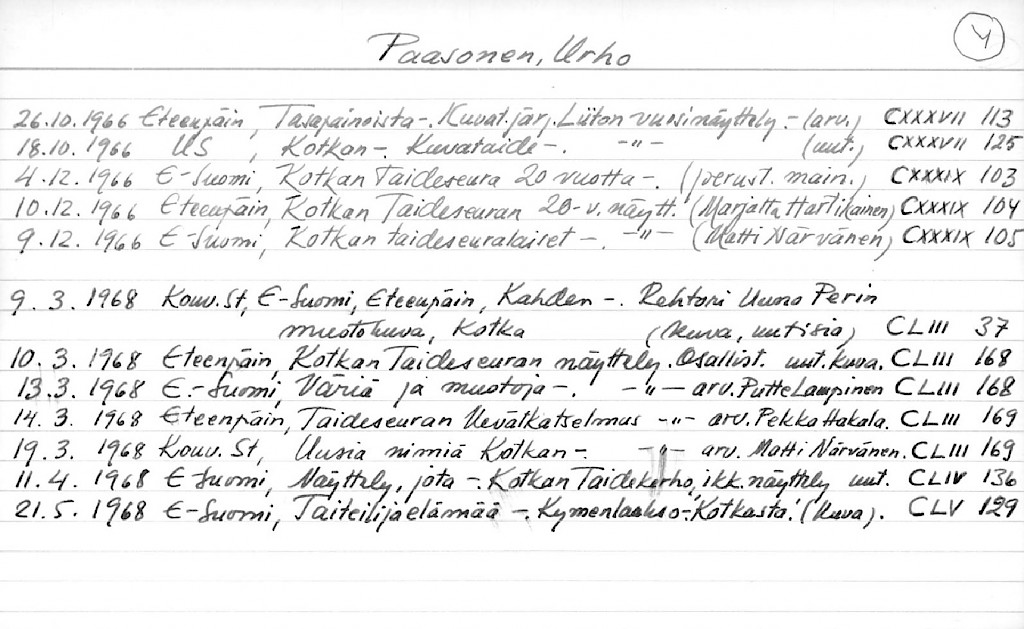 4
Paasonen, Urho
26.10.1966 Eteenpäin, Tasapainoista -. Kuvat.järj. Liiton vuosinäyttely - (arv.) CXXXVII 113
18.10.1966 US, Kotkan -. Kuvataide -. -"- (uut.) CXXXVII 125
4.12.1966 E-Suomi, Kotkan Taideseura 20 vuotta -. (perust. main.) CXXXIX 103
10.12.1966 Eteenpäin, Kotkan Taideseuran 20-v. näytt. (Marjatta Hartikainen) CXXXIX 104
9.12.1966 E-Suomi, Kotkan taideseuralaiset -. -"- (Matti Närvänen) CXXXIX 105
9.3.1968 Kouv. St, E-Suomi, Eteenpäin, Kahden -. Rehtori Uuno Perin
muotokuva, Kotka (kuva, uutisia) CLIII 37
10.3.1968 Eteenpäin, Kotkan Taideseuran näyttely. Osallist. uut. kuva. CLIII 168
13.3.1968 E.-Suomi, Väriä ja muotoja -. -"- arv. Putte Lampinen CLIII 168
14.3.1968 Eteenpäin, Taideseuran Kevätkatselmus -"- arv. Pekka Hakala. CLIII 169
19.3.1968 Kouv. St, Uusia nimiä Kotkan -. -"- arv. Matti Närvänen. CLIII 169
11.4.1968 E-Suomi, Näyttely, jota -. Kotkan Taidekerho, ikk. näyttely uut. CLIV 136
21.5.1968 E-Suomi, Taiteilijaelämää -. Kymenlaakso -. Kotkasta! (kuva). CLV 129